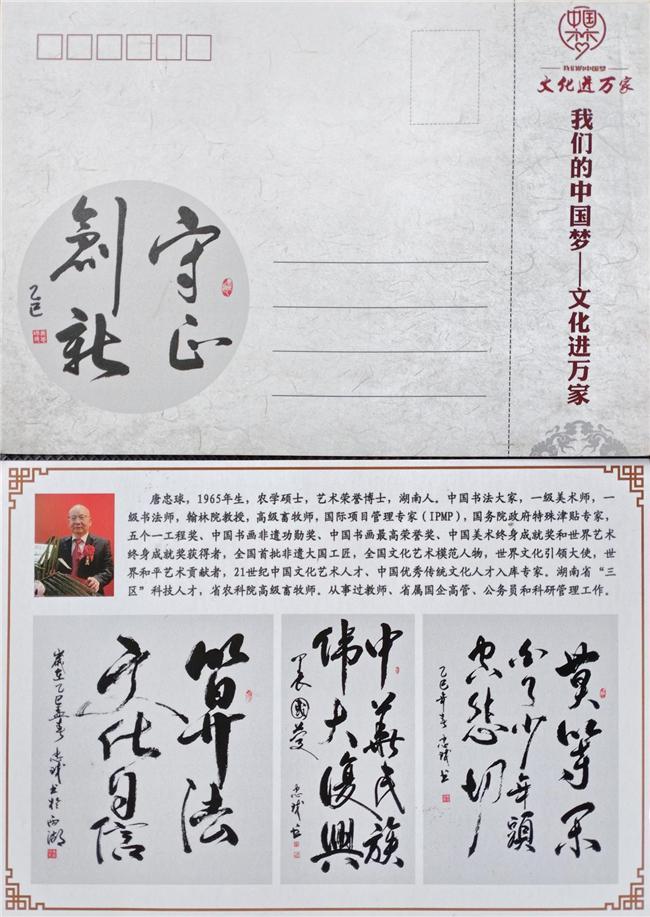 中国梦
我们的中国梦
文化进万家
我们的中国條——文化进万家
守正
創新
乙巳
唐忠球，1965年生，农学硕士，艺术荣誉博士，湖南人。中国书法大家，一级美术师，一
级书法师，翰林院教授，高级畜牧师，国际项目管理专家（IPMP），国务院政府特殊津贴专家，
五个一工程奖、中国书画非遗功勋奖、中国书画最高荣誉奖、中国美术终身成就奖和世界艺术
终身成就奖获得者，全国首批非遗大国工匠，全国文化艺术模范人物，世界文化引领大使，世
界和平艺术贡献者，21世纪中国文化艺术人才、中国优秀传统文化人才入库专家。湖南省“三
区”科技人才，省农科院高级畜牧师。从事过教师、省属国企高管、公务员和科研管理工作。
算法
文化自信
歲在乙巳孟春忠球书於西湖
中華民族
偉大復興
中國夢
忠球书
莫等闲
白了少年頭
空悲切
乙巳年春忠球书